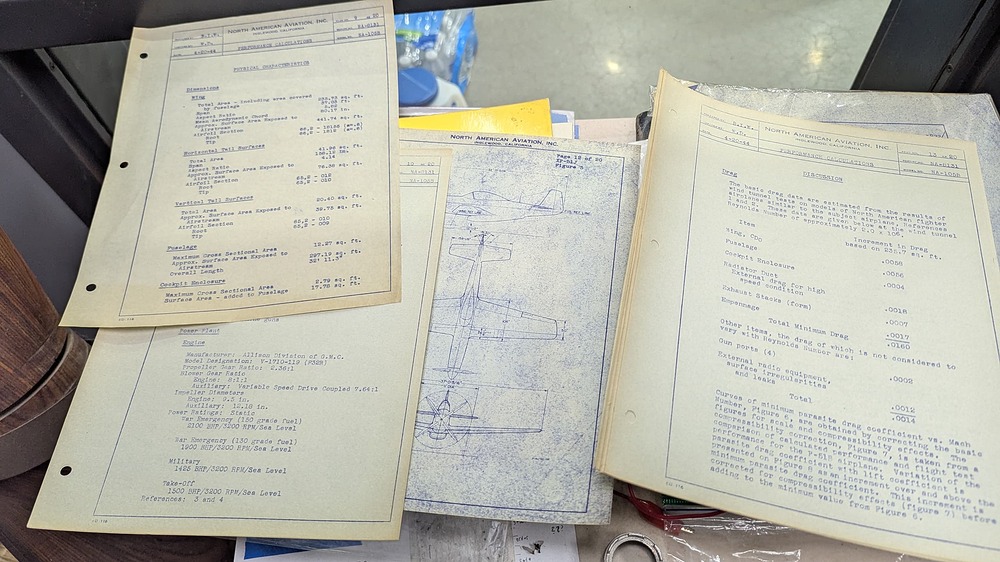 NORTH AMERICAN AVIATION, INC.
INGLEWOOD, CALIFORNIA
4-20-44
PERFORMANCE CALCULATIONS
NA-8131
NA-105B
PHYSICAL CHARACTERISTICS
Dimensions
Wing
Total Area - including area covered
by fuselage
Span
Aspect Ratio
Mean Aerodynamic Chord
Approx. Surface Area Exposed to
Airstream
Airfoil Section
Root
Tip
Horizontal Tail Surfaces
Total Area 41.96 sq. ft.
Span
Aspect Ratio
Approx. Surface Area Exposed to
Airstream
Airfoil Section
Root
Tip
Vertical Tail Surfaces
Total Area 20.40 sq. ft.
Approx. Surface Area Exposed to
Airstream 39.75 sq. ft.
Airfoil Section
Root 65,2 - 010
Tip 65,2 - 009
Fuselage
Maximum Cross Sectional Area 12.27 sq. ft.
Approx. Surface Area Exposed to
Airstream 297.19 sq. ft.
Overall Length
Cockpit Enclosure
Maximum Cross Sectional Area 2.79 sq. ft.
Surface Area - added to Fuselage 17.78 sq. ft.
Power Plant
Engine
Manufacturer: Allison Division of G.M.C.
Model Designation: V-1710-119 (F32R)
Propeller Gear Ratio: 2.36:1
Blower Gear Ratio
Engine: 8.1:1
Auxiliary: Variable Speed Drive Coupled 7.64:1
Impeller Diameters
Engine: 9.5 in.
Auxiliary: 12.18 in.
Power Ratings: Static
War Emergency (150 grade fuel)
2100 BHP/3200 RPM/Sea Level
War Emergency (130 grade fuel)
1900 BHP/3200 RPM/Sea Level
Military
1425 BHP/3200 RPM/Sea Level
Take-Off
1500 BHP/3200 RPM/Sea Level
References: 3 and 4
NORTH AMERICAN AVIATION, INC.
INGLEWOOD, CALIFORNIA
Page 12 of 20
XP-51J
Figure 3
NORTH AMERICAN AVIATION, INC.
INGLEWOOD, CALIFORNIA
PERFORMANCE CALCULATIONS
13 20
NA-8131
NA-105B
DISCUSSION
Drag
The basic drag data are estimated from the results of
wind tunnel tests on models of North American fighter
airplanes similar to the subject airplane, references
1 and 2. These data are given below at the wind tunnel
Reynolds Number of approximately 2.0 x 10⁶.
Item
Increment in Drag
based on 235.7 sq. ft.
Wing, CDo .0058
Fuselage .0056
Cockpit Enclosure .0004
Radiator Duct
External drag for high
speed condition .0018
Exhaust Stacks (form) .0007
Empennage .0017
Total Minimum Drag .0160
Other items, the drag of which is not considered to
vary with Reynolds Number are:
Gun ports (4) .0002
External radio equipment,
surface irregularities
and leaks .0012
Total .0014
Curves of minimum parasite drag coefficient vs. Mach
Number, Figure 6, are obtained by correcting the basic
figures for scale and compressibility effects. The
compressibility correction, Figure 7, is taken from a
comparison of calculated performance and flight test
performance for the airplane. Variation of the
minimum parasite drag coefficient with lift coefficient is
presented on figure 8 as an increment over and above the
minimum parasite drag coefficient. This increment is
corrected for compressibility effects (figure 7) before
adding to the minimum value from Figure 6.